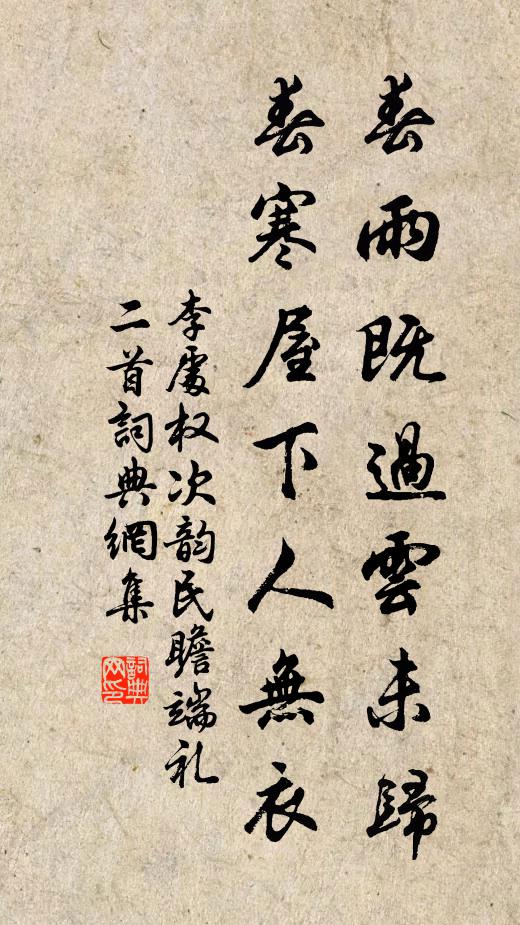 春雨既過雲未歸
春寒屋下人無衣
李處权次韵民瞻端礼
二首詞典網集
詞典网印